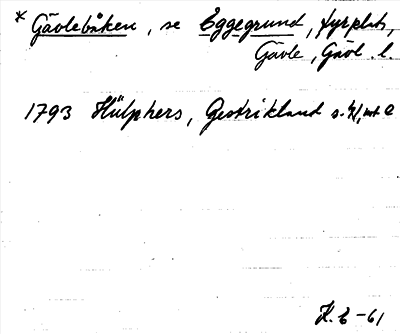 * Gävlebåken, se Eggegrund, fyrplats,
Gävle, Gävl. l.
1793 Hülphers, Gestrikland s.
K. E -61